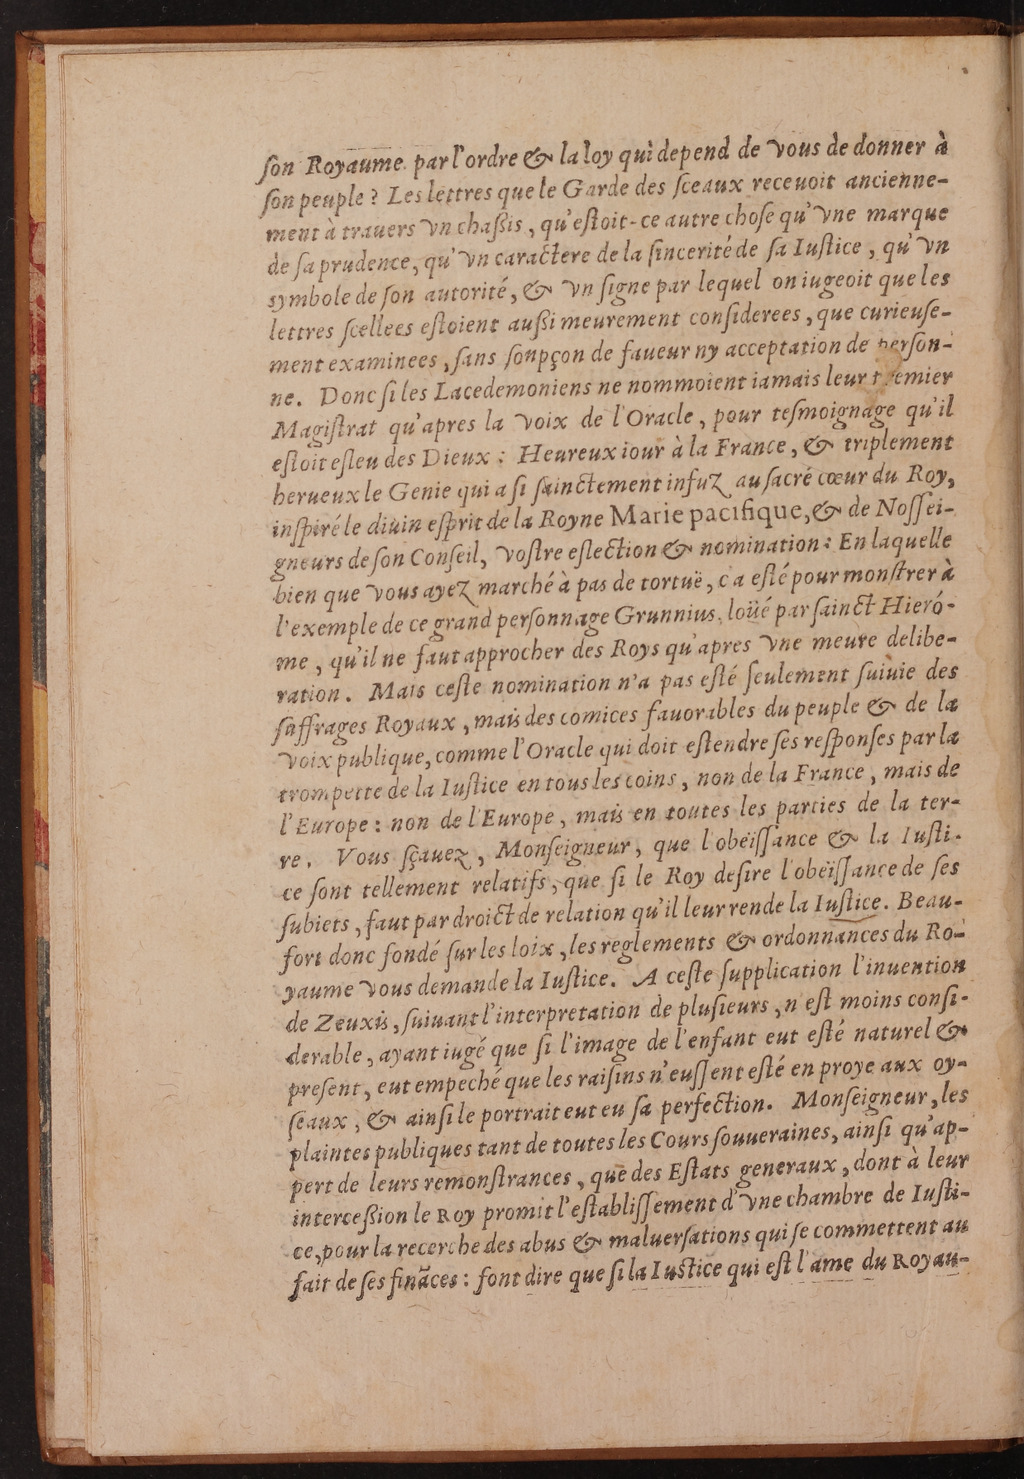 ſon Royaume par l'ordre & la loy qui depend de vous de donner à
ſon peuple ? Les lettres que le Garde des ſceaux receuoit ancienne-
ment à trauers vn chaßis, qu'eſtoit-ce autre choſe qu'vne marque
de ſa prudence, qu'vn caractere de la ſincerité de ſa Iuſtice, qu'vn
symbole de ſon autorité, & vn ſigne par lequel on iugeoit que les
lettres ſcellees eſtoient außi meurement conſiderees, que curieuſe-
ment examinees, ſans ſoupçon de faueur ny acceptation de perſon-
ne. Donc ſi les Lacedemoniens ne nommoient iamais leur premier
Magiſtrat qu'apres la voix de l'Oracle, pour teſmoignage qu'il
eſtoit eſleu des Dieux : Heureux iour à la France, & triplement
herueux le Genie qui a ſi ſainctement infuz au ſacré cœur du Roy,
inſpiré le diuin eſprit de la Royne Marie pacifique, & de Noſſei-
gneurs de ſon Conſeil, voſtre eſlection & nomination : En laquelle
bien que vous ayez marché à pas de tortuë, ç'a eſté pour monſtrer à
l'exemple de ce grand perſonnage Grunnius, loüé par ſainct Hieró-
me, qu'il ne faut approcher des Roys qu'apres vne meure delibe-
ration. Mais ceſte nomination n'a pas eſté ſeulement ſuiuie des
ſuffrages Royaux, mais des comices fauorables du peuple & de la
voix publique, comme l'Oracle qui doit eſtendre ſes reſponſes par la
trompette de la Iuſtice en tous les coins, non de la France, mais de
l'Europe : non de l'Europe, mais en toutes les parties de la ter-
re. Vous ſçauez, Monſeigneur, que l'obeïſſance & la Iuſti-
ce ſont tellement relatifs, que ſi le Roy deſire l'obeïſſance de ſes
ſubiets, faut par droict de relation qu'il leur rende la Iuſtice. Beau-
fort donc fondé ſur les loix, les reglements & ordonnances du Ro-
yaume vous demande la Iuſtice. A ceſte ſupplication l'inuention
de Zeuxis, ſuiuant l'interpretation de pluſieurs, n'eſt moins conſi-
derable, ayant iugé que ſi l'image de l'enfant eut eſté naturel &
preſent, eut empeché que les raiſins n'euſſent eſté en proye aux oy-
ſeaux, & ainſi le portrait eut eu ſa perfection. Monſeigneur, les
plaintes publiques tant de toutes les Cours ſouueraines, ainſi qu'ap-
pert de leurs remonſtrances, que des Eſtats generaux, dont à leur
interceßion le Roy promit l'eſtabliſſement d'vne chambre de Iuſti-
ce, pour la recerche des abus & maluerſations qui ſe commettent au
fait de ſes finãces : font dire que ſi la Iuſtice qui eſt l'ame du Royau-